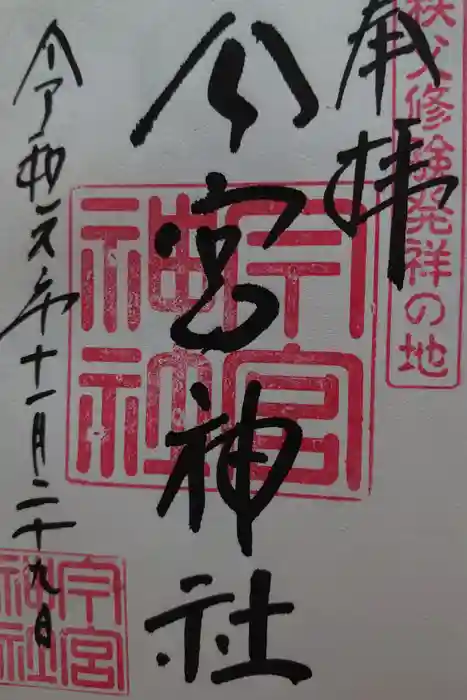 秩父修験発祥の地
奉拝
今宮神社
今宮
神社
令和元年十一月二十九日
今宮
神社